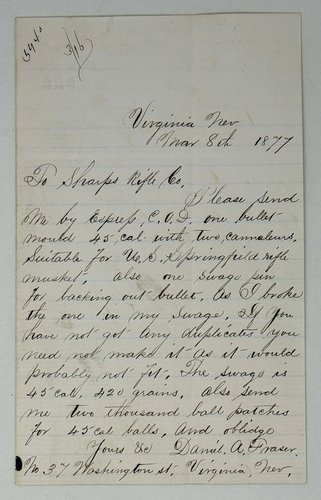 544
3/16
Virginia Nev
Mar 8th 1877
To Sharps Rifle Co,
Please send
Me by Express, C.O.D, one bullet
mould 45 cal. with two cannelures,
Suitable for U.S. Springfield rifle
musket. also one Swage pin
for backing out bullet. as I broke
the one in my Swage. If you
have not got any duplicates you
need not make it as it would
probably not fit. The swage is
45 cal, 420 grains, also send
me two thousand ball patches
for 45 cal balls, and oblidge
Yours &c Danil. A. Fraser.
No. 37 Washington st. Virginia, Nev.